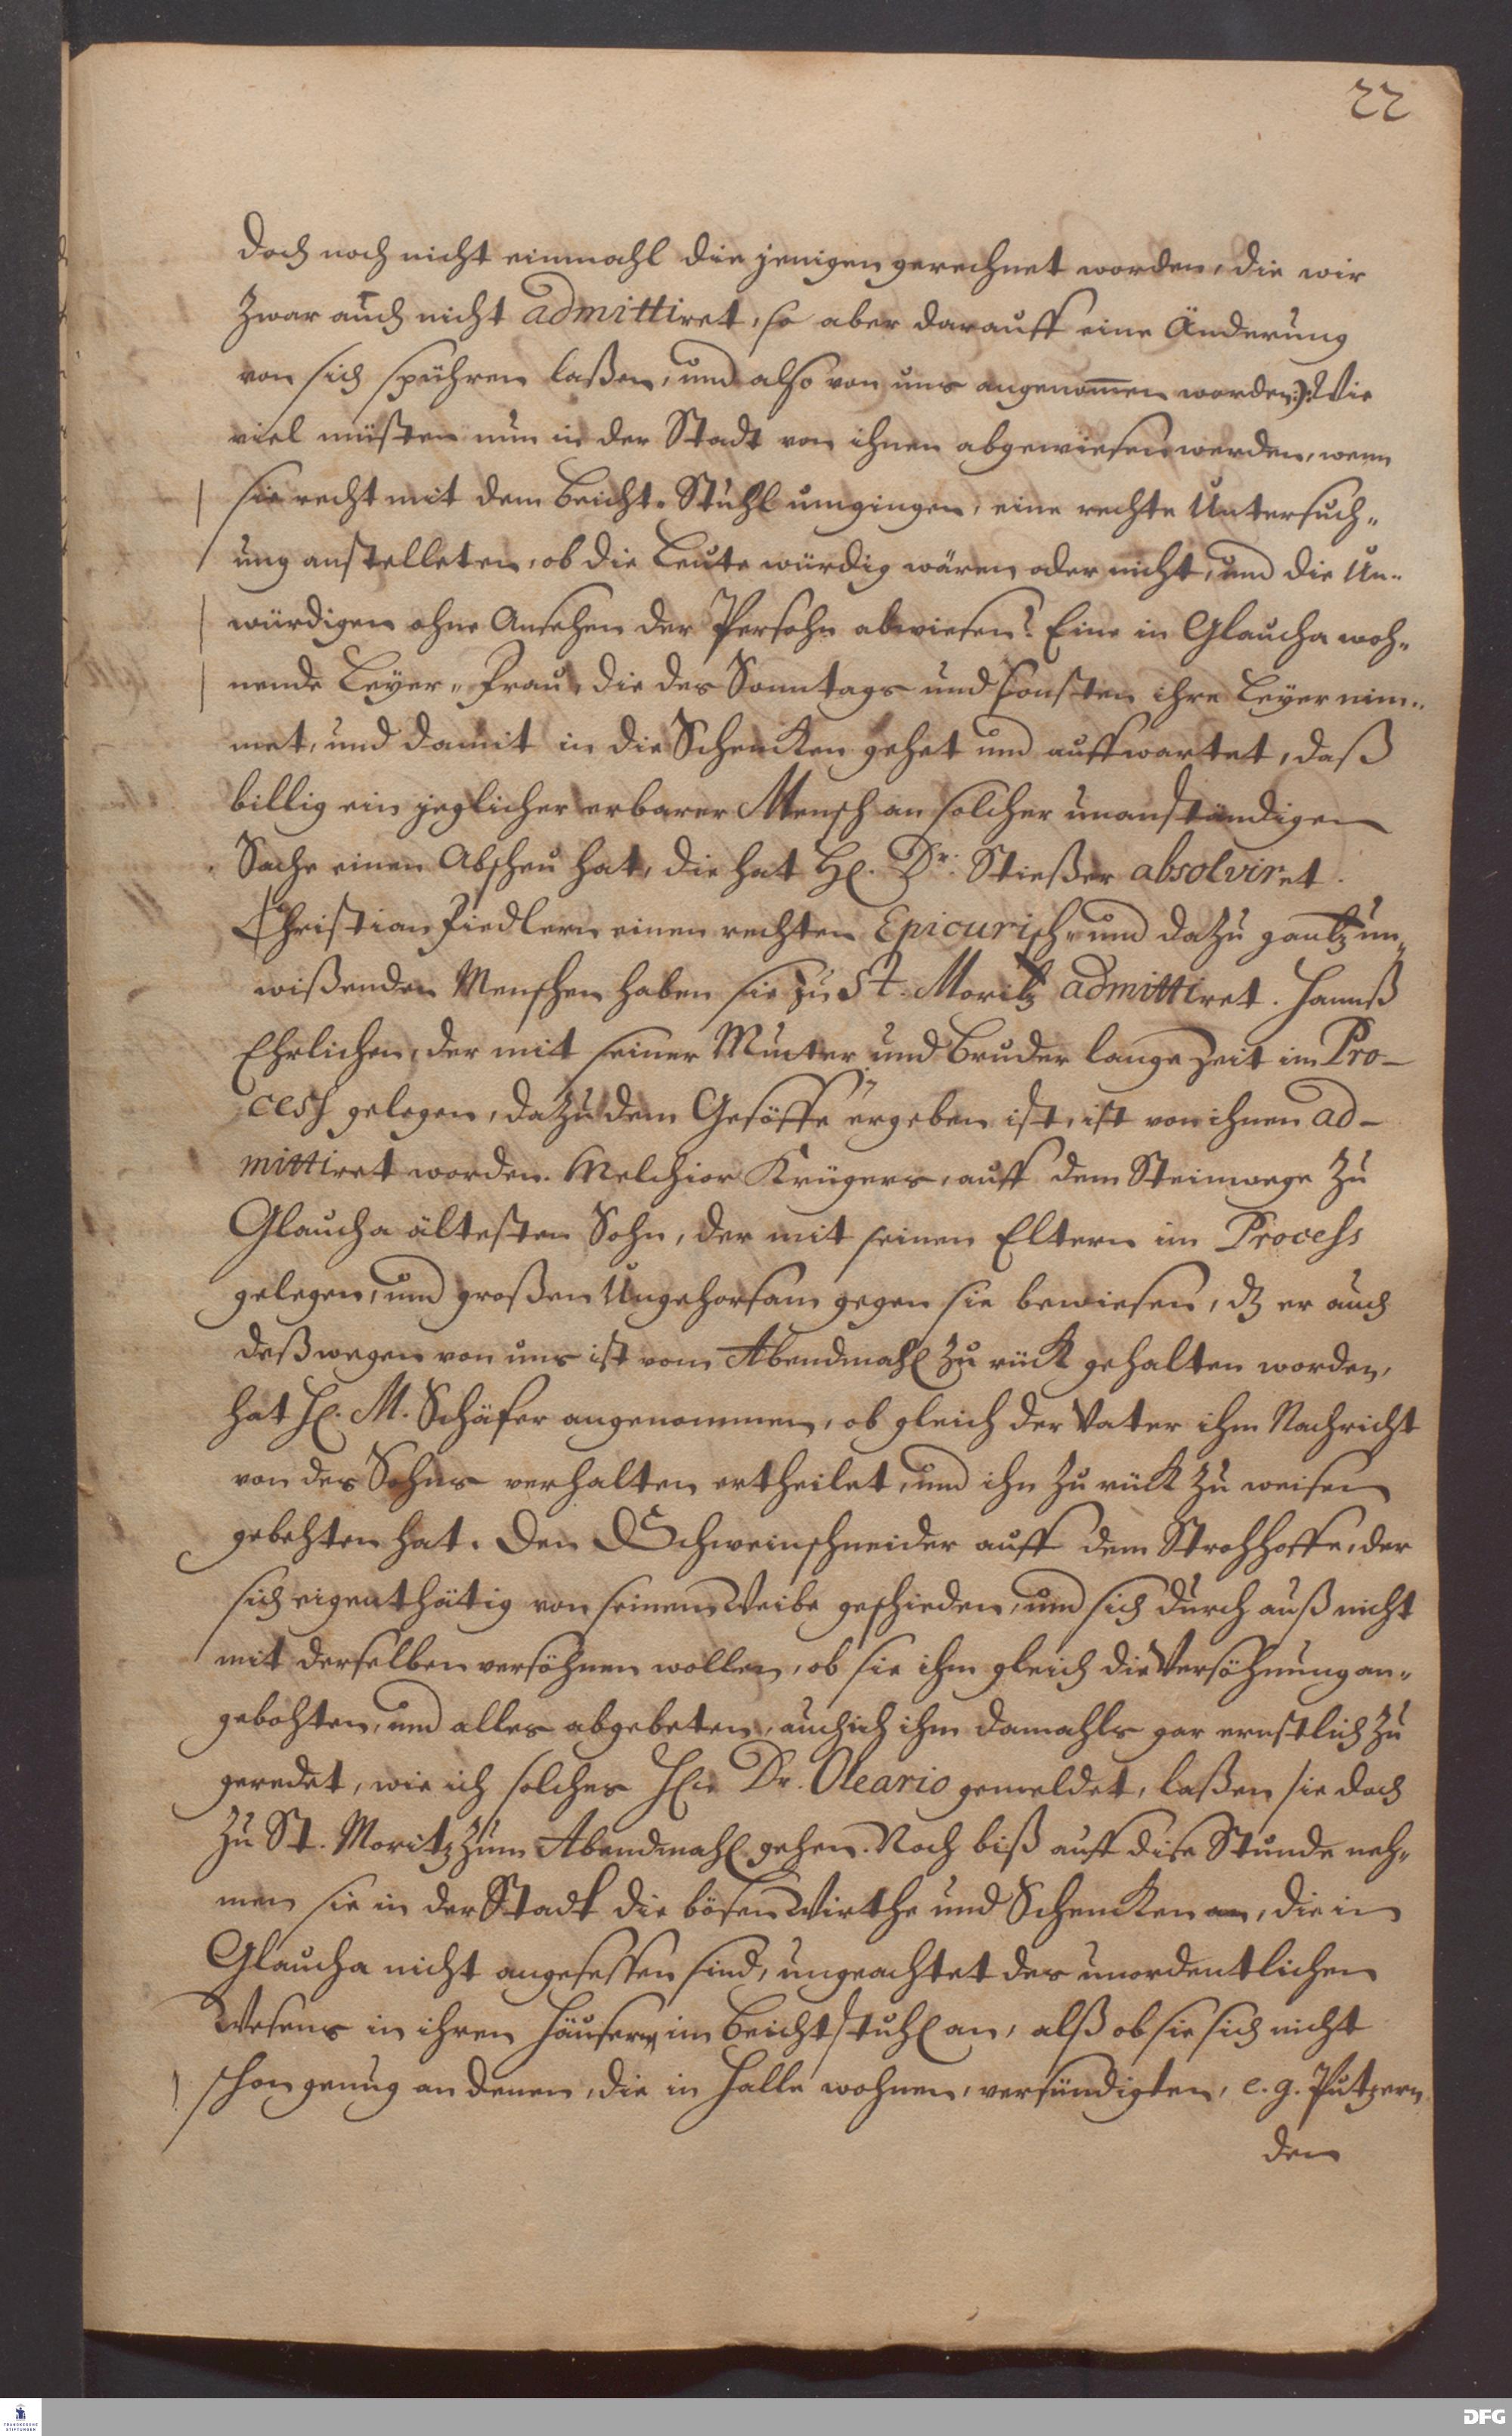 22
doch noch nicht einmahl die jenigen gerechnet worden, die wir
zwar auch nicht admittiret, so aber darauff eine Änderung
von sich spühren laßen, und also von uns angenom̄en worden:) Wie
viel müsten nun in der Stadt von ihnen abgewiesen werden, wenn
sie recht mit dem Beicht-Stuhl umgingen, eine rechte Untersuch-
ung anstelleten, ob die Leute würdig wären oder nicht, und die Un-
würdigen ohne Ansehen der Persohn abwiesen? Eine in Glaucha woh-
nende Leyer-Frau, die des Sonntags und sonsten ihre Leyer nim-
met, und damit in die Schencken gehet und auffwartet, daß
billig ein jeglicher erbarer Mensch an solcher unanständigen
Sache einen Abscheu hat, die hat H. Dr. Stießer absolviret.
Christian Fiedlern einen rechten Epicurisch- und dazu gantz un-
wißenden Menschen haben sie zu St. Moritz admittiret. Hannß
Ehrlichen, der mit seiner Mutter und Bruder lange Zeit im Pro-
cess gelegen, dazu dem Gesöffe ergeben ist, ist von ihnen ad-
mittiret worden. Melchior Krügers, auff dem Steinwege zu
Glaucha ältesten Sohn, der mit seinen Eltern im Process
gelegen, und großen Ungehorsam gegen sie bewiesen, dz er auch
deßwegen von uns ist vom Abendmahl zu rück gehalten worden,
hat H. M. Schäfer angenommen, ob gleich der Vater ihm Nachricht
von des Sohns verhalten ertheilet, und ihn zu rück zu weisen
gebehten hat. Den Schweinschneider auff dem Strohhoffe, der
sich eigenthätig von seinem Weibe geschieden, und sich durch auß nicht
mit derselben versöhnen wollen, ob sie ihm gleich die Versöhnung an-
gebohten, und alles abgebeten, auch ich ihm damahls gar ernstlich zu
geredet, wie ich solches Hn Dr. Oleario gemeldet, laßen sie doch
zu St. Moritz zum Abendmahl gehen. Noch biß auff dise Stunde neh-
men sie in der Stadt die bösen Wirthe und Schencken an, die in
Glaucha nicht angesessen sind, ungeachtet des unordentlichen
Wesens in ihren Häusern im Beichtstuhl an, alß ob sie sich nicht
schon genug an denen, die in Halle wohnen, versündigten, e. g. Putzern
den
FRANCKESCHE
STIFTUNGEN
DFG